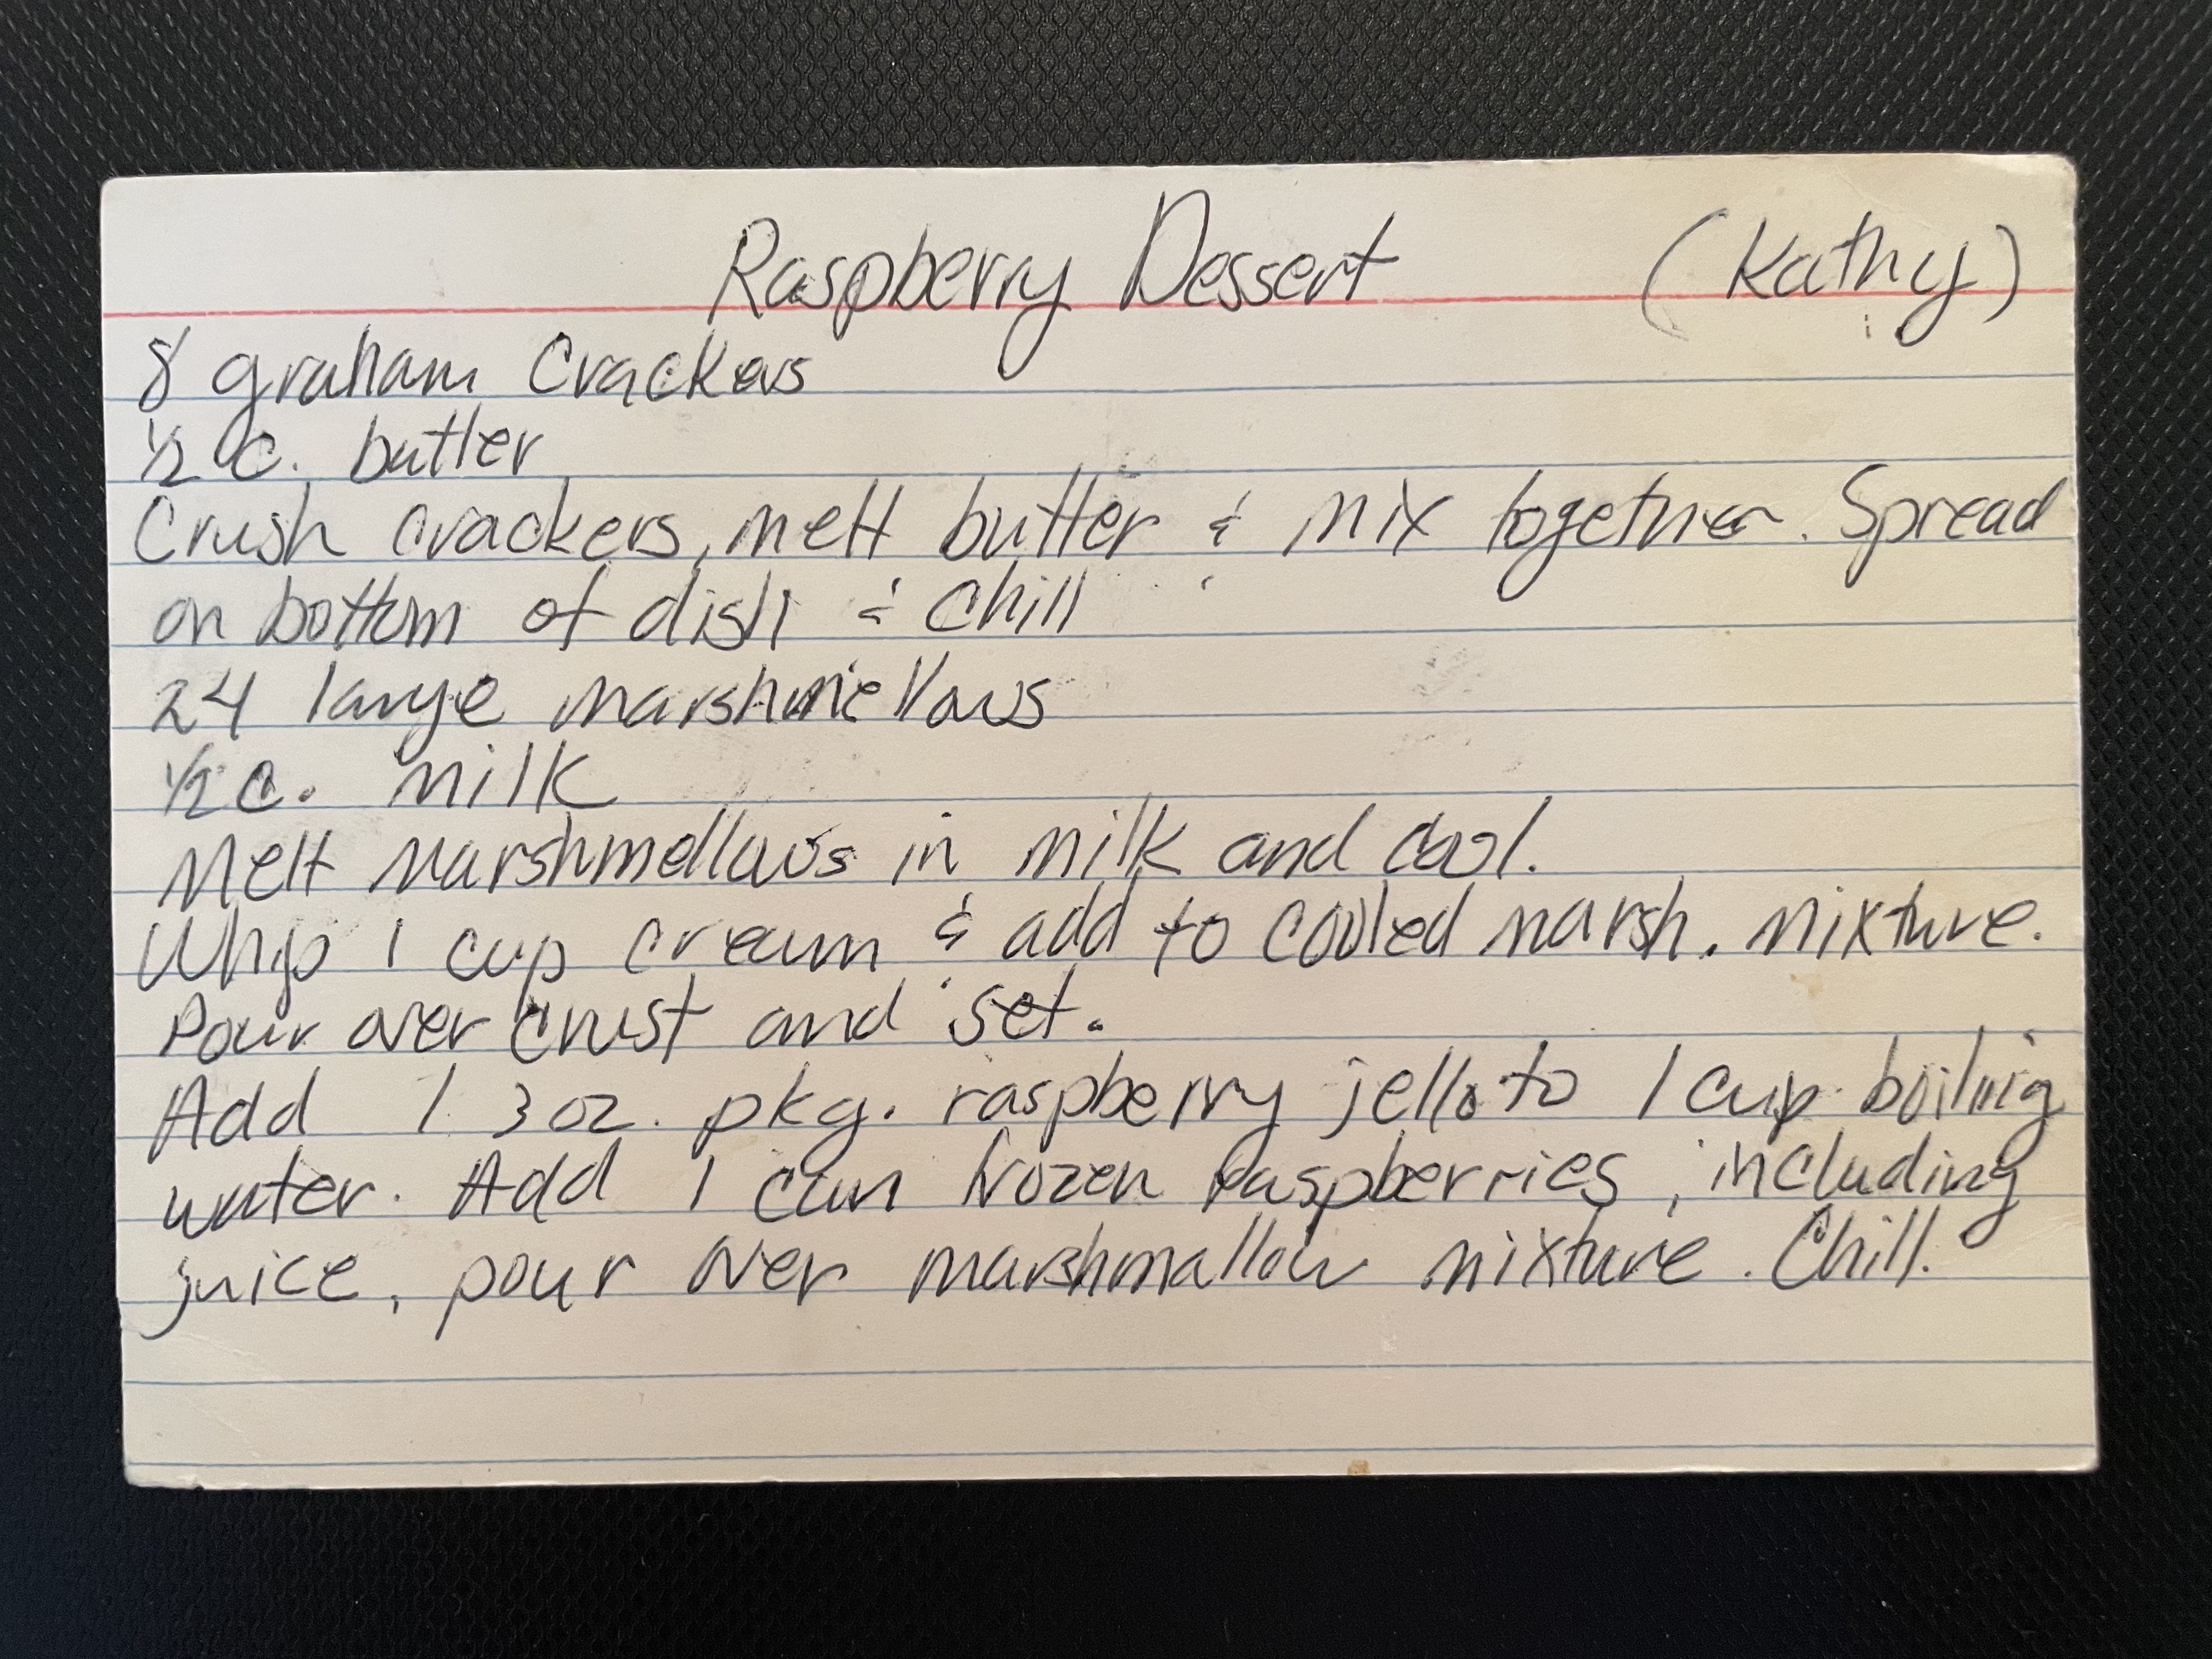 Raspberry Dessert (Kathy)
8 graham Crackers
1/2 c. butter
Crush crackers, melt butter & mix together. Spread
on bottom of dish & Chill
24 large marshmellows
1/2 c. milk
Melt Marshmellows in milk and cool.
Whip 1 cup cream & add to cooled marsh. mixture.
Pour over crust and set.
Add 1 3 oz. pkg. raspberry jello to 1 cup boiling
water. Add 1 can frozen raspberries, including
juice, pour over marshmallow mixture. Chill.